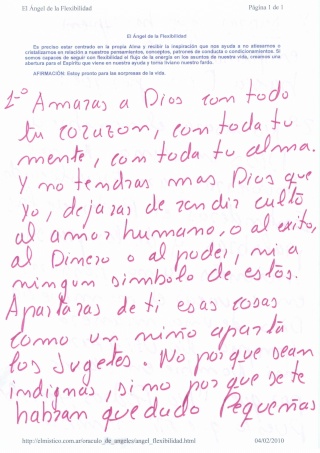 El Ángel de la Flexibilidad Página 1 de 1
El Ángel de la Flexibilidad
Es preciso estar centrado en la propia Alma y recibir la inspiración que nos ayuda a no atiesarnos o
cristalizarnos en relación a nuestros pensamientos, conceptos, patrones de conducta o condicionamientos. Si
somos capaces de seguir con flexibilidad el flujo de la energía en los asuntos de nuestra vida, creamos una
abertura para el Espíritu que viene en nuestra ayuda y torna liviano nuestro fardo.
AFIRMACIÓN: Estoy pronto para las sorpresas de la vida.
1-º Amaras a Dios con todo
tu corazon, con toda tu
mente, con toda tu alma.
Y no tendras mas Dios que
Yo, dejaras de rendir culto
al amor humano, o al exito,
al Dinero o al poder, ni a
ningum simbolo de estos.
Apartaras de ti esas cosas
como un niño aparta
los Jugetes. No porque sean
indignas, si no por que se te
habran quedado Pequeñas
http://elmistico.com.ar/oraculo_de_angeles/angel_flexibilidad.html 04/02/2010